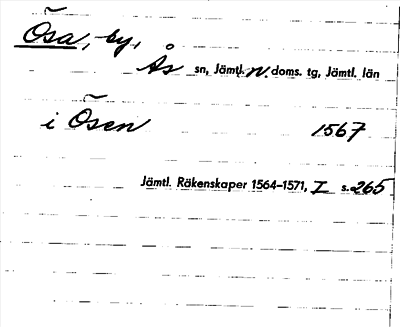 Ösa, by,
Ås sn, Jämtl. n. doms. tg, Jämtl. län
i Ösen 1567
Jämtl. Räkenskaper 1564-1571, I s. 265